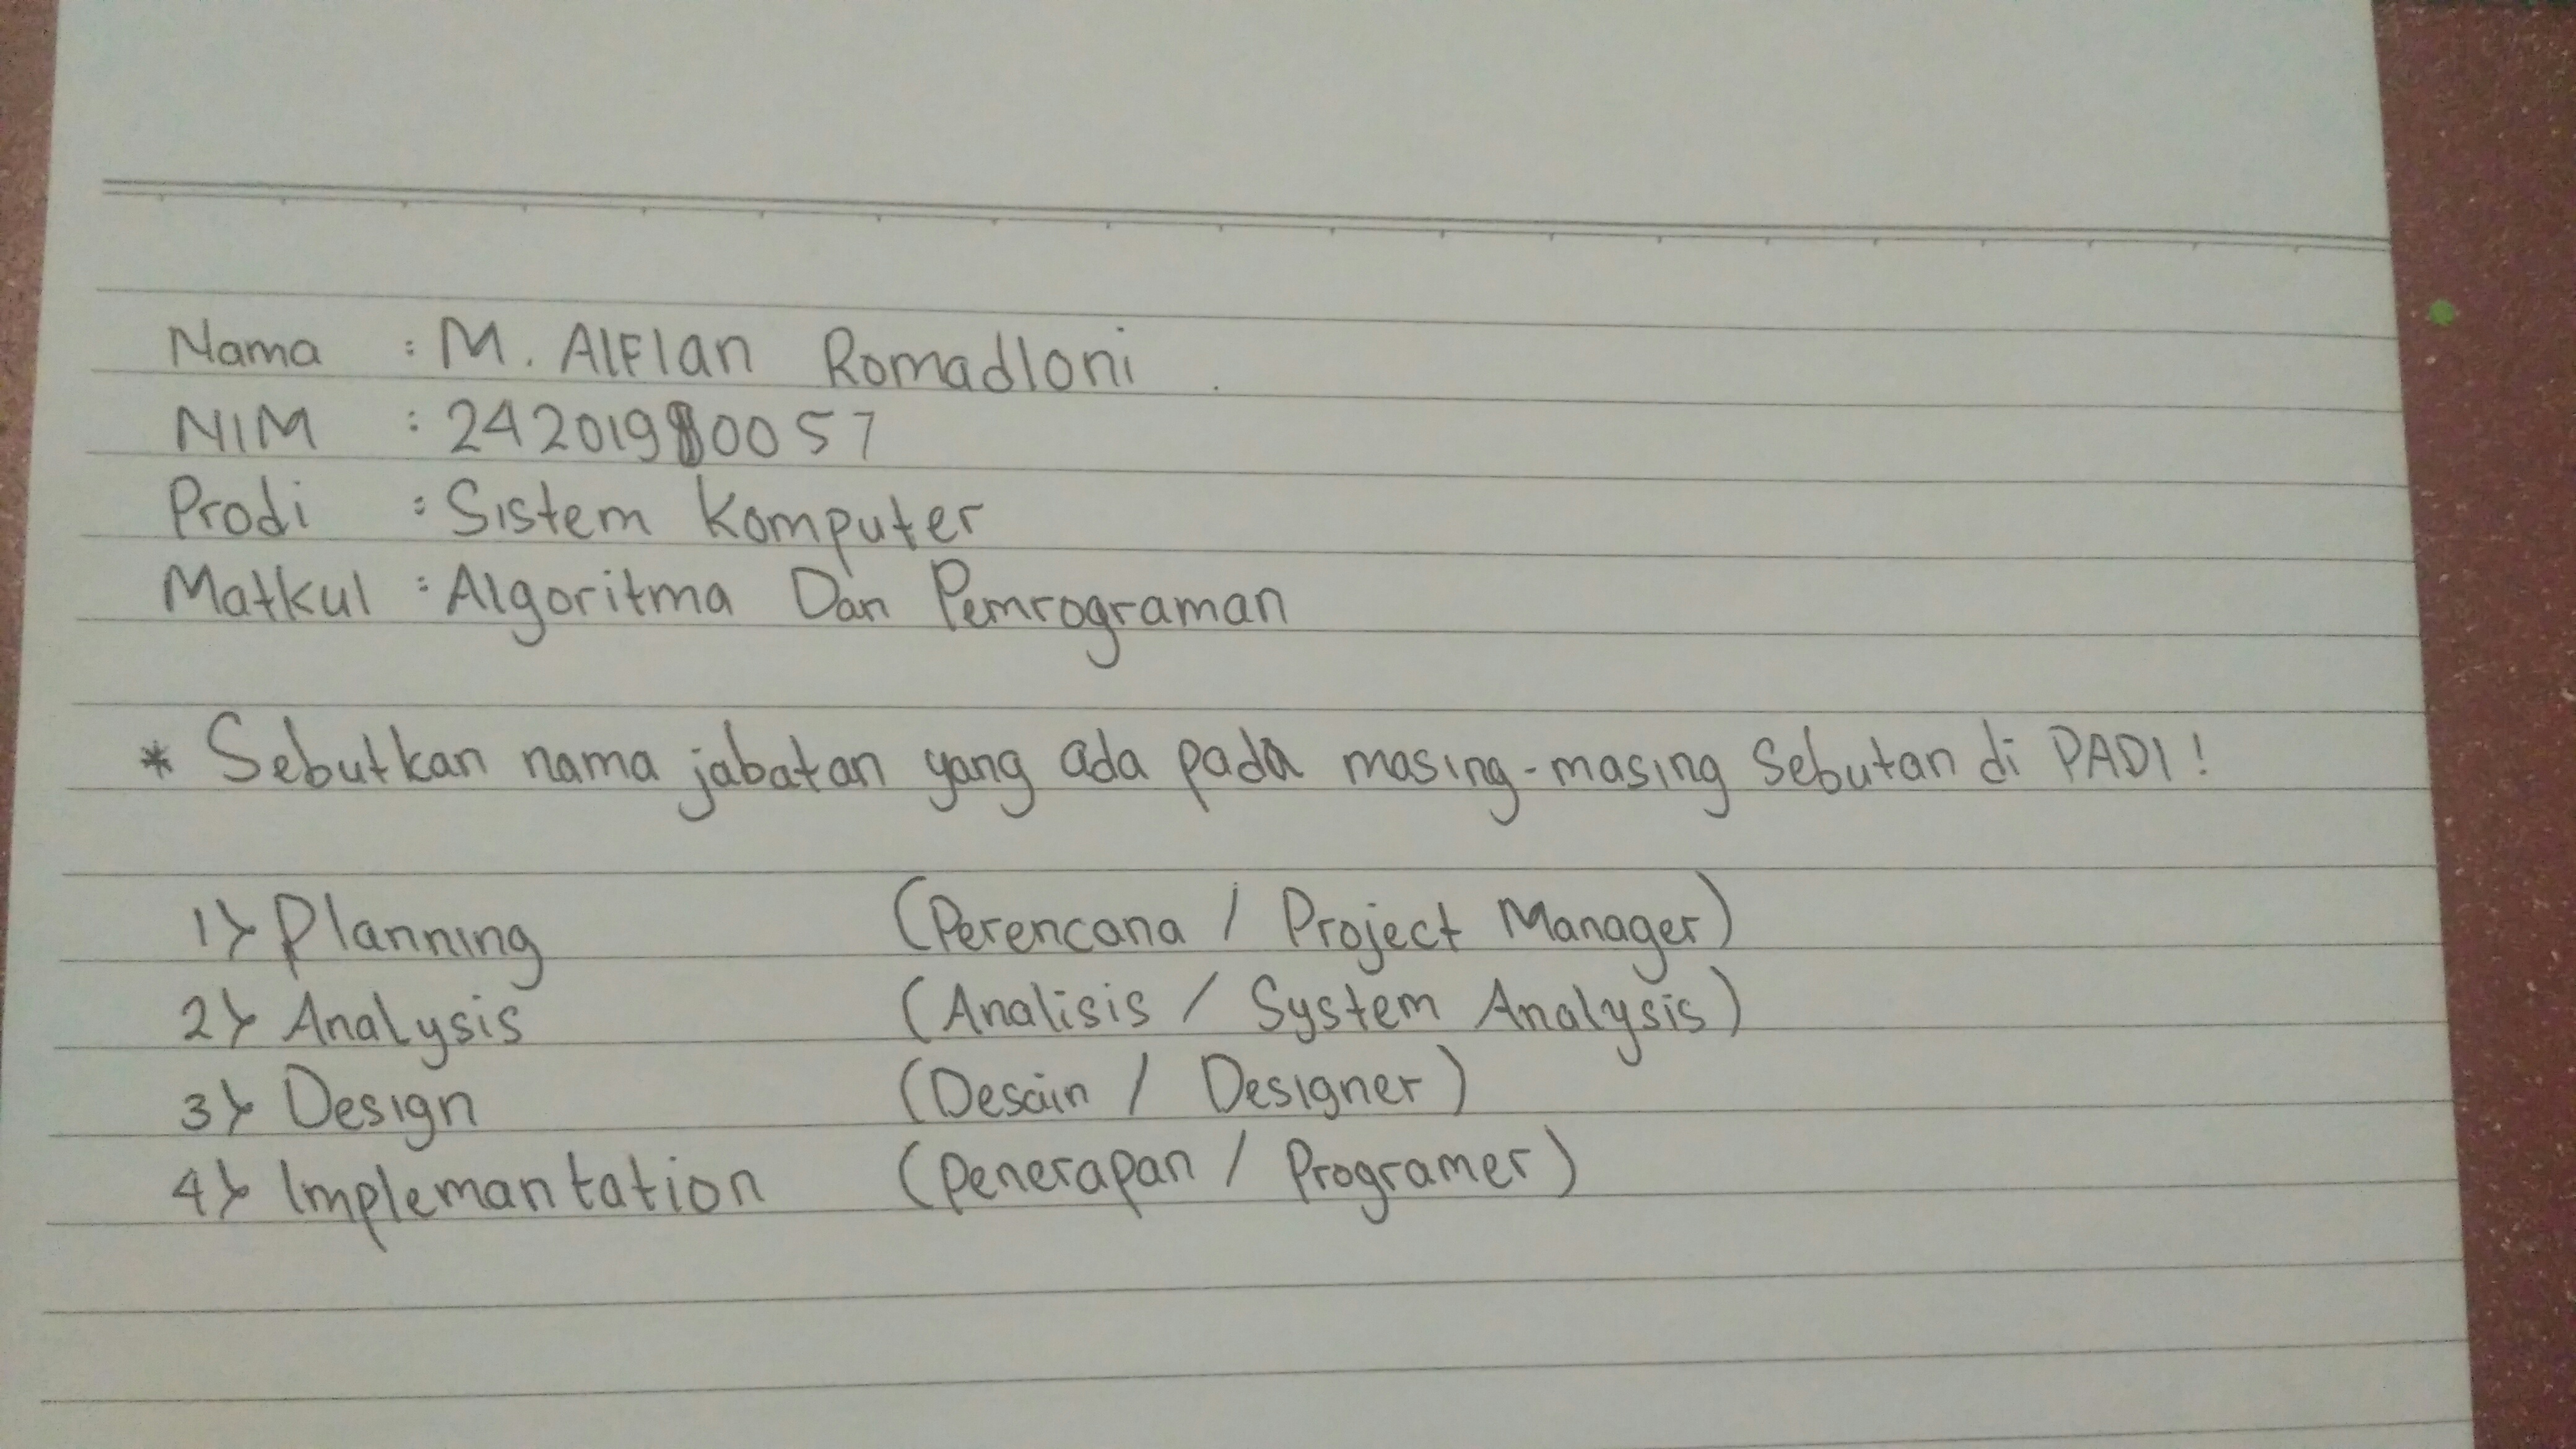 Nama : M. Alfian Romadloni.
NIM : 24201980057
Prodi : Sistem Komputer
Matkul : Algoritma Dan Pemrograman
* Sebutkan nama jabatan yang ada pada masing-masing Sebutan di PADI!
1) Planning (Perencana / Project Manager)
2) Analysis (Analisis / System Analysis)
3) Design (Desain / Designer)
4) Implemantation (Penerapan / Programer)